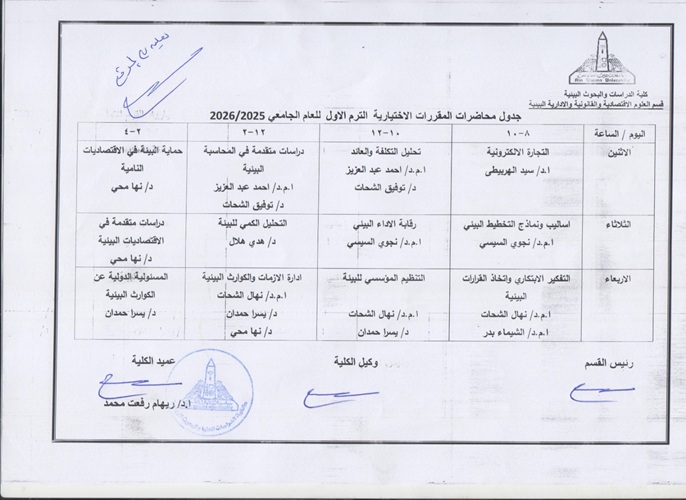 Ain Shams University
كلية الدراسات والبحوث البيئية
قسم العلوم الاقتصادية والقانونية والادارية البيئية
جدول محاضرات المقررات الاختيارية الترم الاول للعام الجامعي 2026/2025
اليوم / الساعة
٨-١٠
١٠-١٢
١٢-٢
٢-٤
الاثنين
التجارة الالكترونية
ا.د/ سيد الهربيطى
تحليل التكلفة والعائد
ا.م.د/ احمد عبد العزيز
د/ توفيق الشحات
دراسات متقدمة في المحاسبة
البيئية
ا.م.د/ احمد عبد العزيز
د/ توفيق الشحات
حماية البيئة في الاقتصاديات
النامية
د/ نها محي
الثلاثاء
اساليب ونماذج التخطيط البيئي
ا.م.د/ نجوي السيسي
رقابة الاداء البيئي
ا.م.د/ نجوي السيسي
التحليل الكمي للبيئة
د/ هدي هلال
دراسات متقدمة في
الاقتصاديات البيئية
د/ نها محي
الاربعاء
التفكير الابتكاري واتخاذ القرارات
البيئية
ا.م.د/ نهال الشحات
ا.م.د/ الشيماء بدر
التنظيم المؤسسي للبيئة
ا.م.د/ نهال الشحات
د/ يسرا حمدان
ادارة الازمات والكوارث البيئية
ا.م.د/ نهال الشحات
د/ يسرا حمدان
د/ نها محي
المسئولية الدولية عن
الكوارث البيئية
د/ يسرا حمدان
رئيس القسم
وكيل الكلية
عميد الكلية
ا.د/ ريهام رفعت محمد